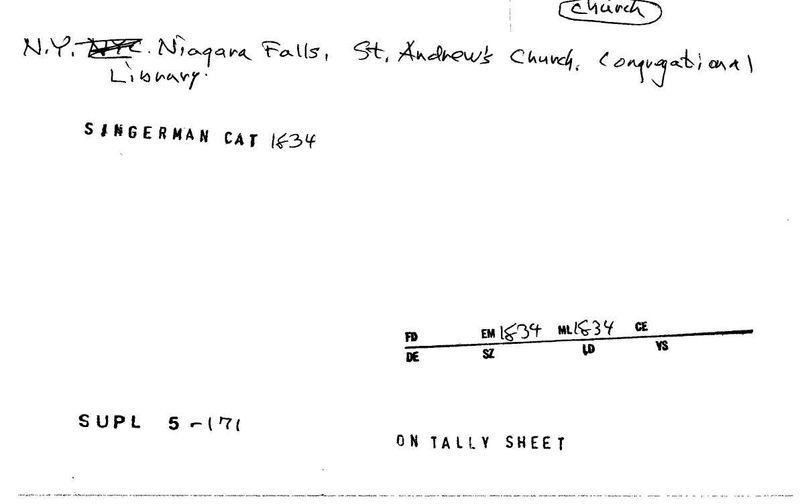 Church
N.Y. Niagara Falls, St. Andrew's Church. Congregational
Library.
SINGERMAN CAT 1834
FD EM 1834 ML 1834 CE
DE SZ LD YS
SUPL 5-171
ON TALLY SHEET